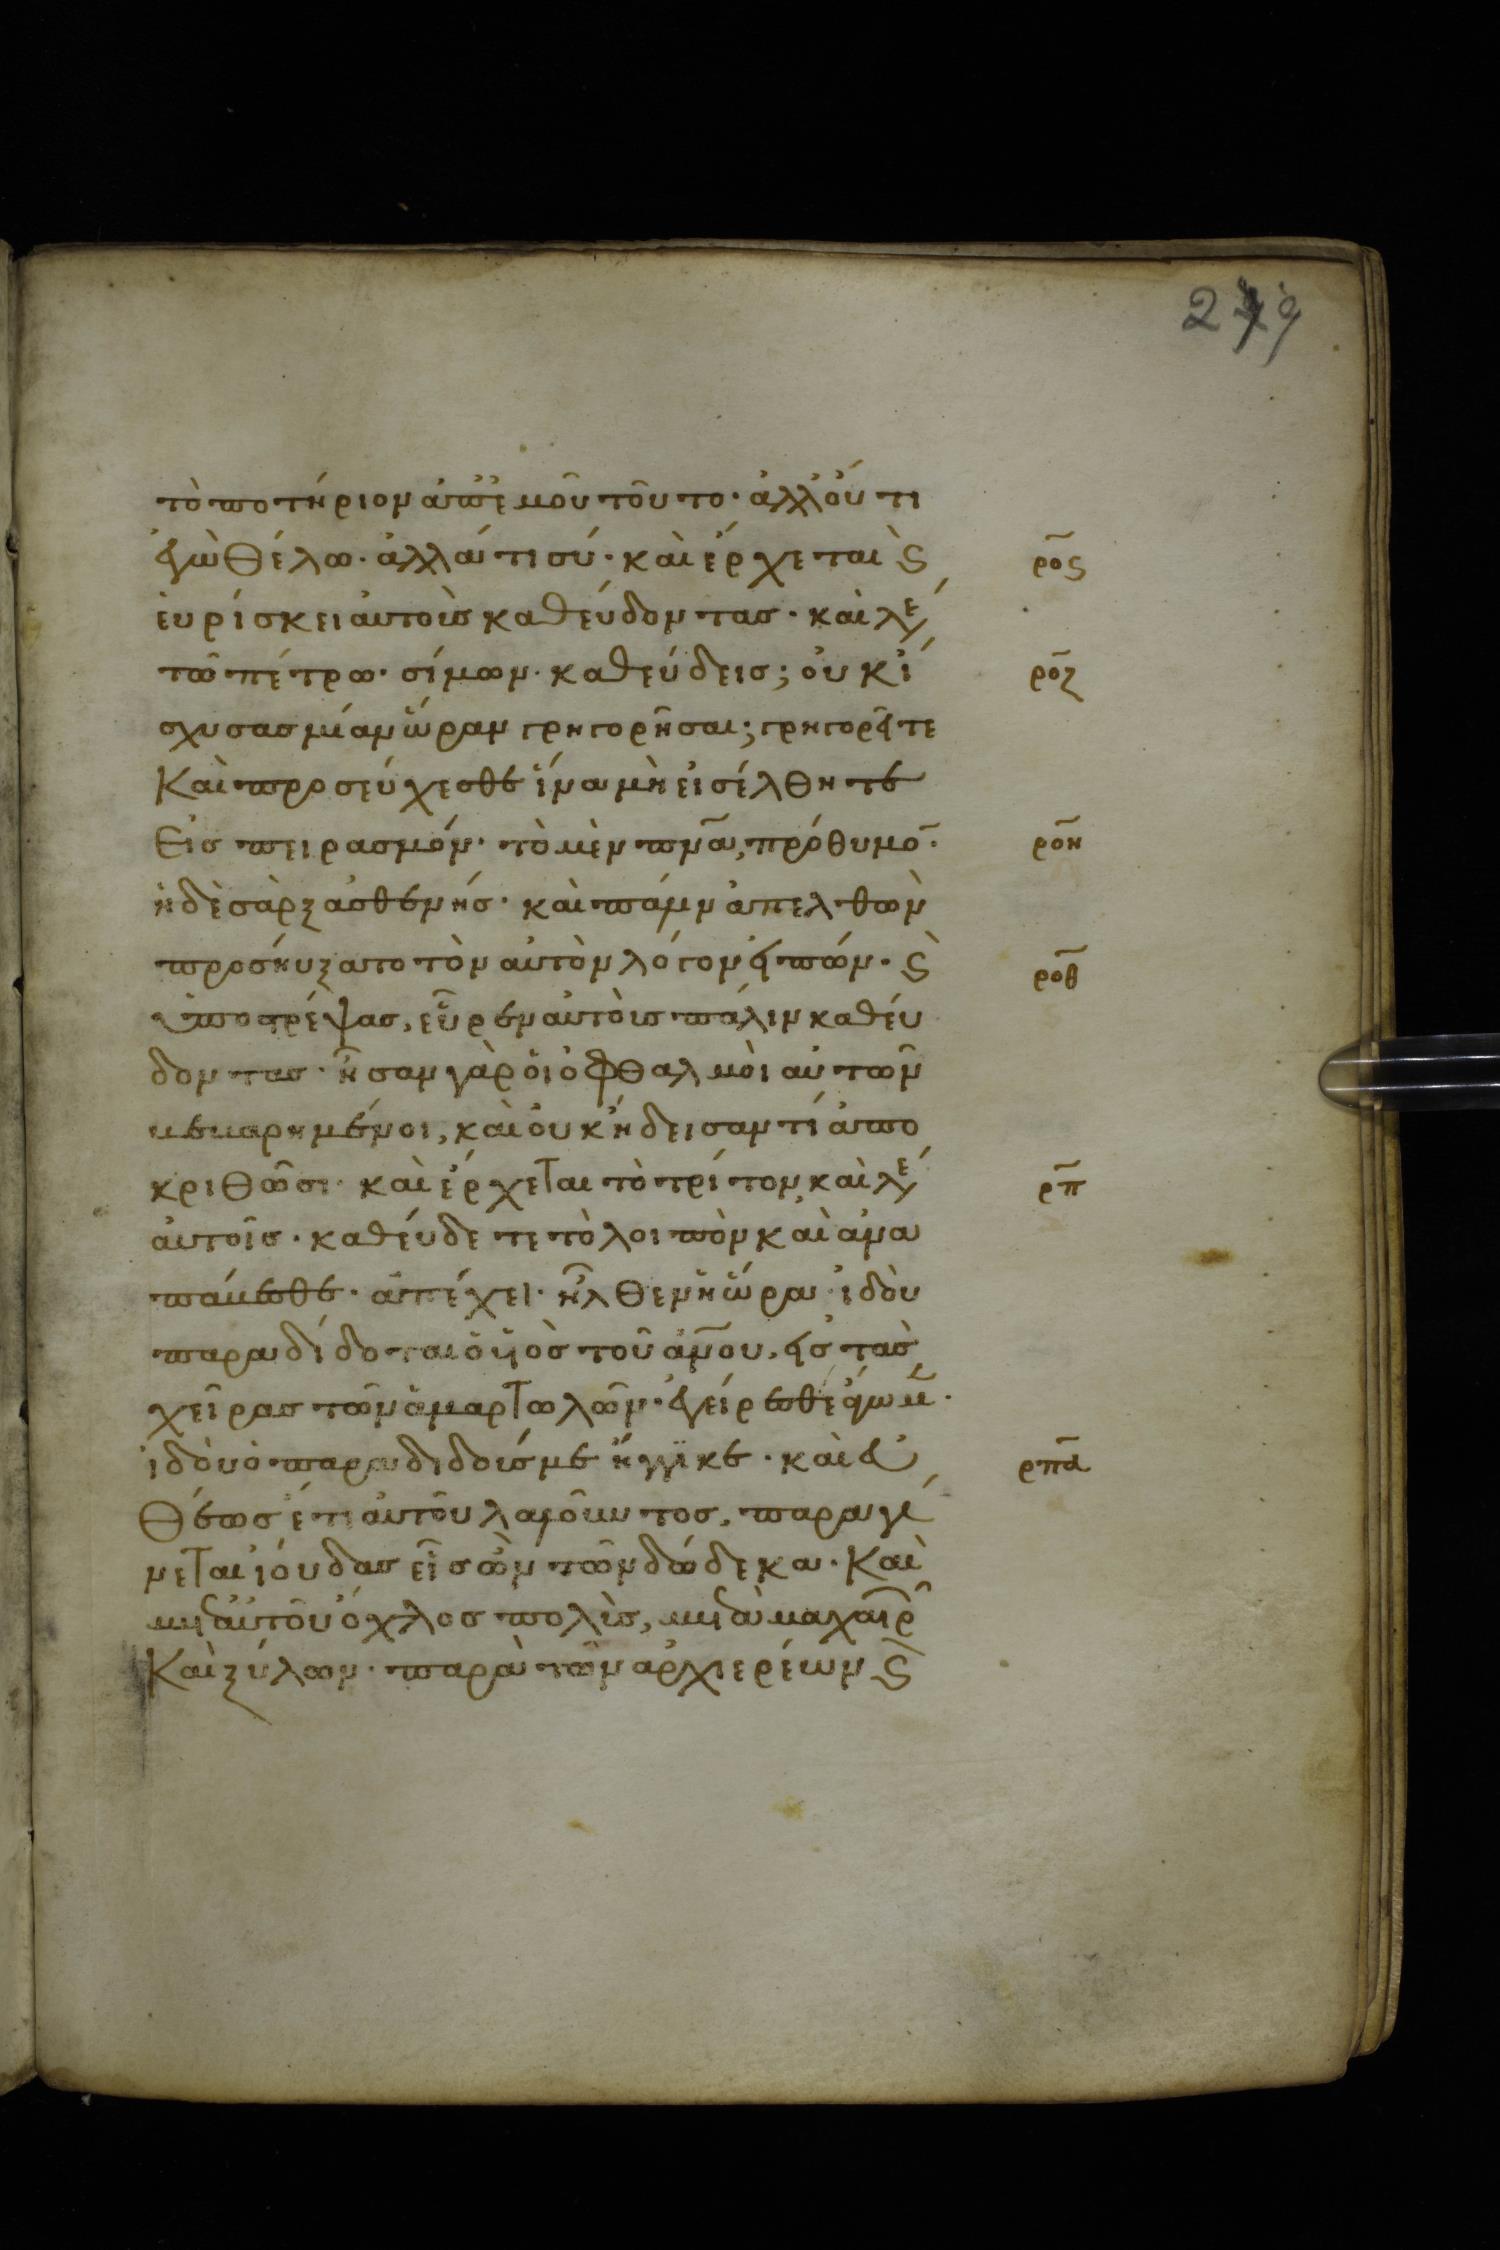 279
τὸ ποτήριον ἀπ' ἐμοῦ τοῦτο· ἀλλ' ού τι
ἐγὼ θέλω· ἀλλά τι σύ· καὶ ἔρχεται ϛ ρος
ἑυρίσκει αὐτοὺς καθεύδοντας· καὶ λέ
τῶ πέτρω· σίμων· καθεύδεις; ὀυκ ἴ ροζ
σχυσας μίαν ὥραν γρηγορῆσαι; γρηγορεῖτε
Καὶ προσεύχεσθε ἵνα μὴ εἰσέλθητε
Εἰς πειρασμόν· τὸ μὲν πνα, πρόθυμο· ροη
ἡ δὲ σὰρξ ἀσθενής· καὶ πάλιν ἀπελθὼν
προσήυξατο τὸν αὐτὸν λόγον εἰπών· ϛ ροθ
ὑποστρέψας, εὗρεν αὐτοὺς πάλιν καθέυ
δοντας· ἦσαν γὰρ ὁι ὀφθαλμὸι αὐτῶν
βεβαρημένοι, καὶ ὀυκ ἤδεισαν τί ἀπο
κριθῶσι· καὶ ἔρχεται τὸ τρίτον, καὶ λέ ρπ
ἀυτοῖς· καθέυδετε τὸ λοιπὸν καὶ ἀνα
πάυεσθε· ἀπέχει· ἦλθεν ἡ ὥρα· ἰδὸυ
παραδίδοται ὁ υἱὸς τοῦ ἀνου, εἰς τὰς
χεῖρας τῶν ἁμαρτωλῶν· ἐγείρεσθε ἄγωμ·
ἰδὸυ ὁ παραδιδούς με ἤγγικε· καὶ εὐ ρπα
Θέως ἔτι ἀυτοῦ λαλοῦντος, παραγί
νεται ἰόυδας εἷς ὢν τῶν δώδεκα· Καὶ
μετ' ἀυτοῦ ὄχλος πολὺς, μετὰ μαχαιρ
Καὶ ξύλων· παρὰ τῶν ἀρχιερέων ϛ